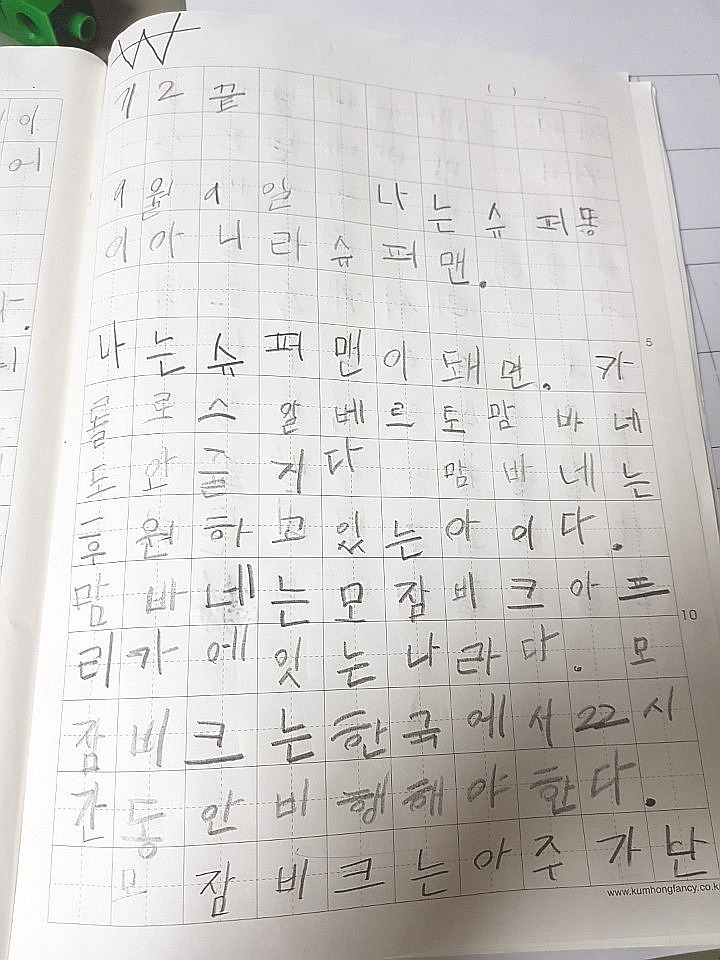 기 2 끝
( )
1월 1일 나는슈퍼뚱
이아니라슈퍼맨.
나는슈퍼맨이돼면. 카
롤로스 알베르토맘바네
도와줄 지다 맘바네는
후원하고있는아이다.
맘바네는모잠비크아프
리가에잇는나라다. 모
잠비크는한국에서22시
간동안비행해야한다.
모잠비크는아주가난
5
10
www.kumhongfancy.co.k